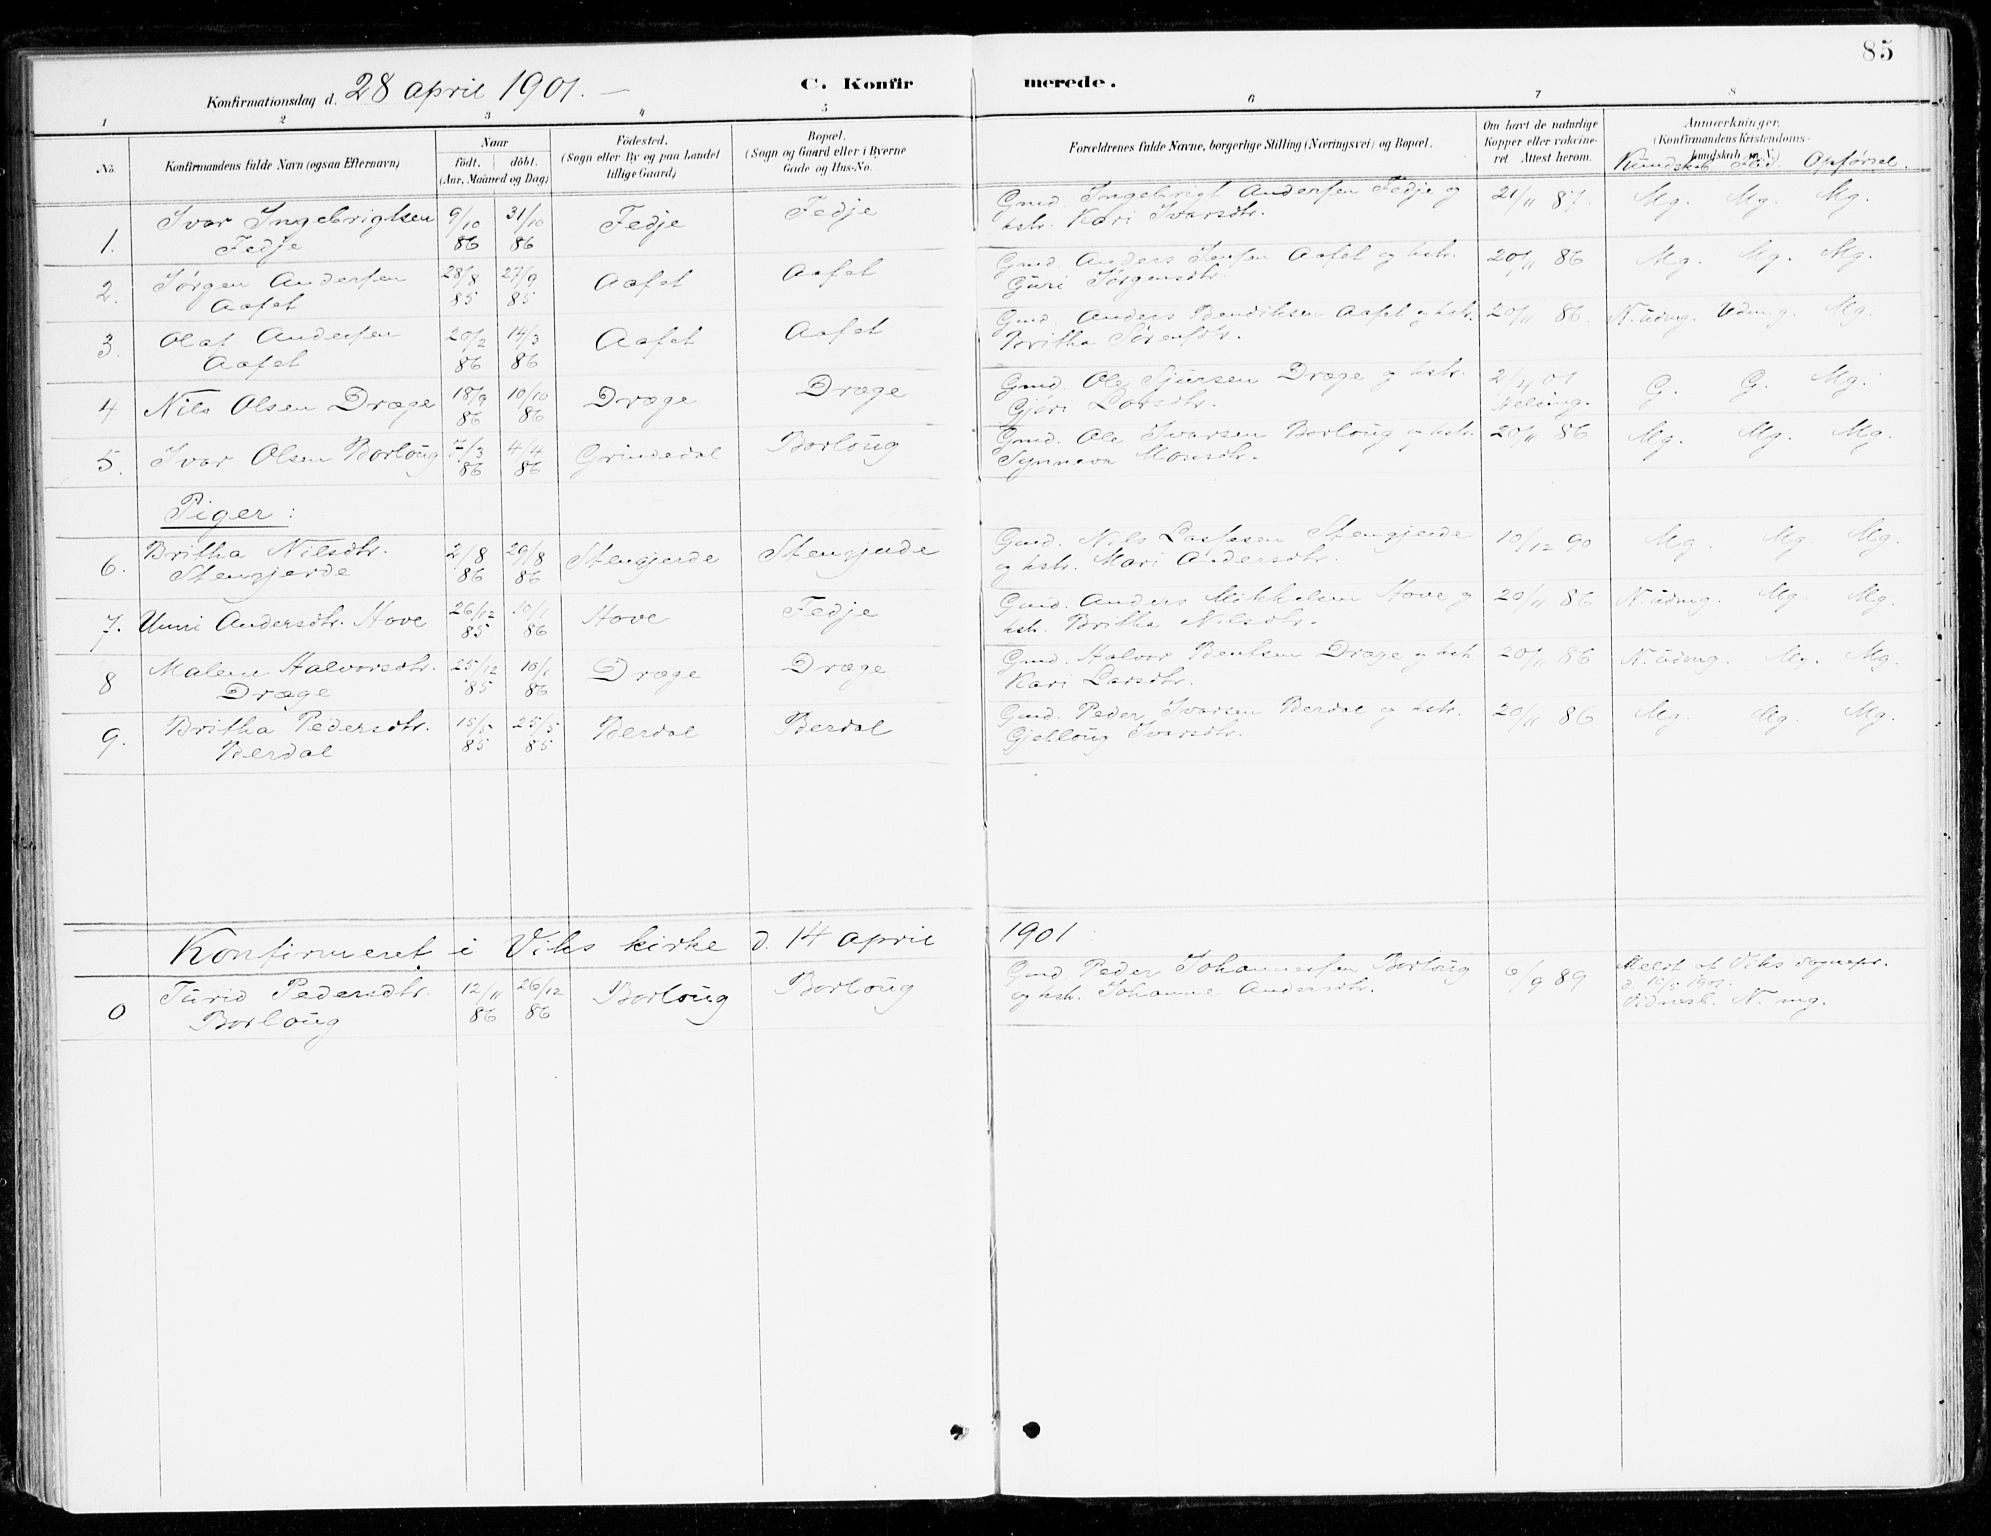 85
Konfirmationsdag d. 28 april 1901. —
C. Konfirmerede.
1 2 3 4 5 6 7 8
No. Konfirmandens fulde Navn (ogsaa Efternavn)
Naar
født. døbt.
(Aar, Maaned og Dag)
Fødested.
(Sogn eller By og paa Landet
tillige Gaard)
Bopæl.
(Sogn og Gaard eller i Byerne
Gade og Hus-No.
Forældrenes fulde Navne, borgerlige Stilling (Næringsvei) og Bopæl.
Om havt de naturlige
Kopper eller vakcine-
ret. Attest herom.
Anmærkninger.
(Konfirmandens Kristendoms-
kundskab m. V.)
Kundskab Flid Opførsel.
1. Ivar Ingebrigtsen
Fedje
9/10 86 31/10 86 Fedje Fedje
Gmd. Ingebrigt Andersen Fedje og
hstr. Kari Ivarsdtr.
21/11 87. Mg. Mg. Mg.
2. Jørgen Andersen
Aafet
28/8 85 27/9 85 Aafet Aafet
Gmd. Anders Jensen Aafet og hstr.
Guri Jørgensdtr.
20/11 86 Mg. Mg. Mg.
3. Olaf Andersen
Aafet
20/2 86 14/3 86 Aafet Aafet
Gmd. Anders Bendiksen Aafet og hstr.
Britha Sørensdtr.
20/11 86. N. udmg. Udm.g. Mg.
4 Nils Olsen Dræge
18/9 86 10/10 86 Dræge Dræge
Gmd. Ole Sjursen Dræge og hstr.
Gjøri Larsdtr.
2/4 01
Helsing.
G. G. Mg.
5. Ivar Olsen Borloug
7/3 86 4/4 86 Grindedal Borloug
Gmd. Ole Ivarsen Borloug og hstr.
Synneva Monsdtr.
20/11 86 Mg. Mg. Mg.
Piger:
6. Britha Nilsdtr.
Stengjerde
2/8 86 29/8 86 Stengjerde Stengjerde
Gmd. Nils Lassesen Stengjerde
og hstr. Mari Andersdtr.
10/12 90 Mg. Mg. Mg.
7. Unni Andersdtr. Hove
26/12 85 10/1 86 Hove Fedje
Gmd. Anders Mikkelsen Hove og
hstr. Britha Nilsdtr.
20/11 86 N. udmg. Mg. Mg.
8 Malene Halvorsdtr.
Dræge
25/12 85 10/1 86 Dræge Dræge
Gmd. Halvor Bentsen Dræge og hstr.
Kari Larsdtr.
20/11 86 N. udmg. Mg. Mg.
9. Britha Pedersdtr.
Berdal
15/5 85 25/5 85 Berdal Berdal
Gmd. Peder Ivarsen Berdal og hstr.
Gjelloug Ivarsdtr.
20/11 86 Mg. Mg. Mg.
Konfirmeret i Viks kirke d. 14 april 1901
0 Turid Pedersdtr.
Borloug
12/11 86 26/12 86 Borloug Borloug
Gmd. Peder Johannessen Borloug
og hstr. Johanne Andersdtr.
6/9 89
Meldt af Viks sognepr.
d. 10/5 1901.
Vidnesb. N. mg.